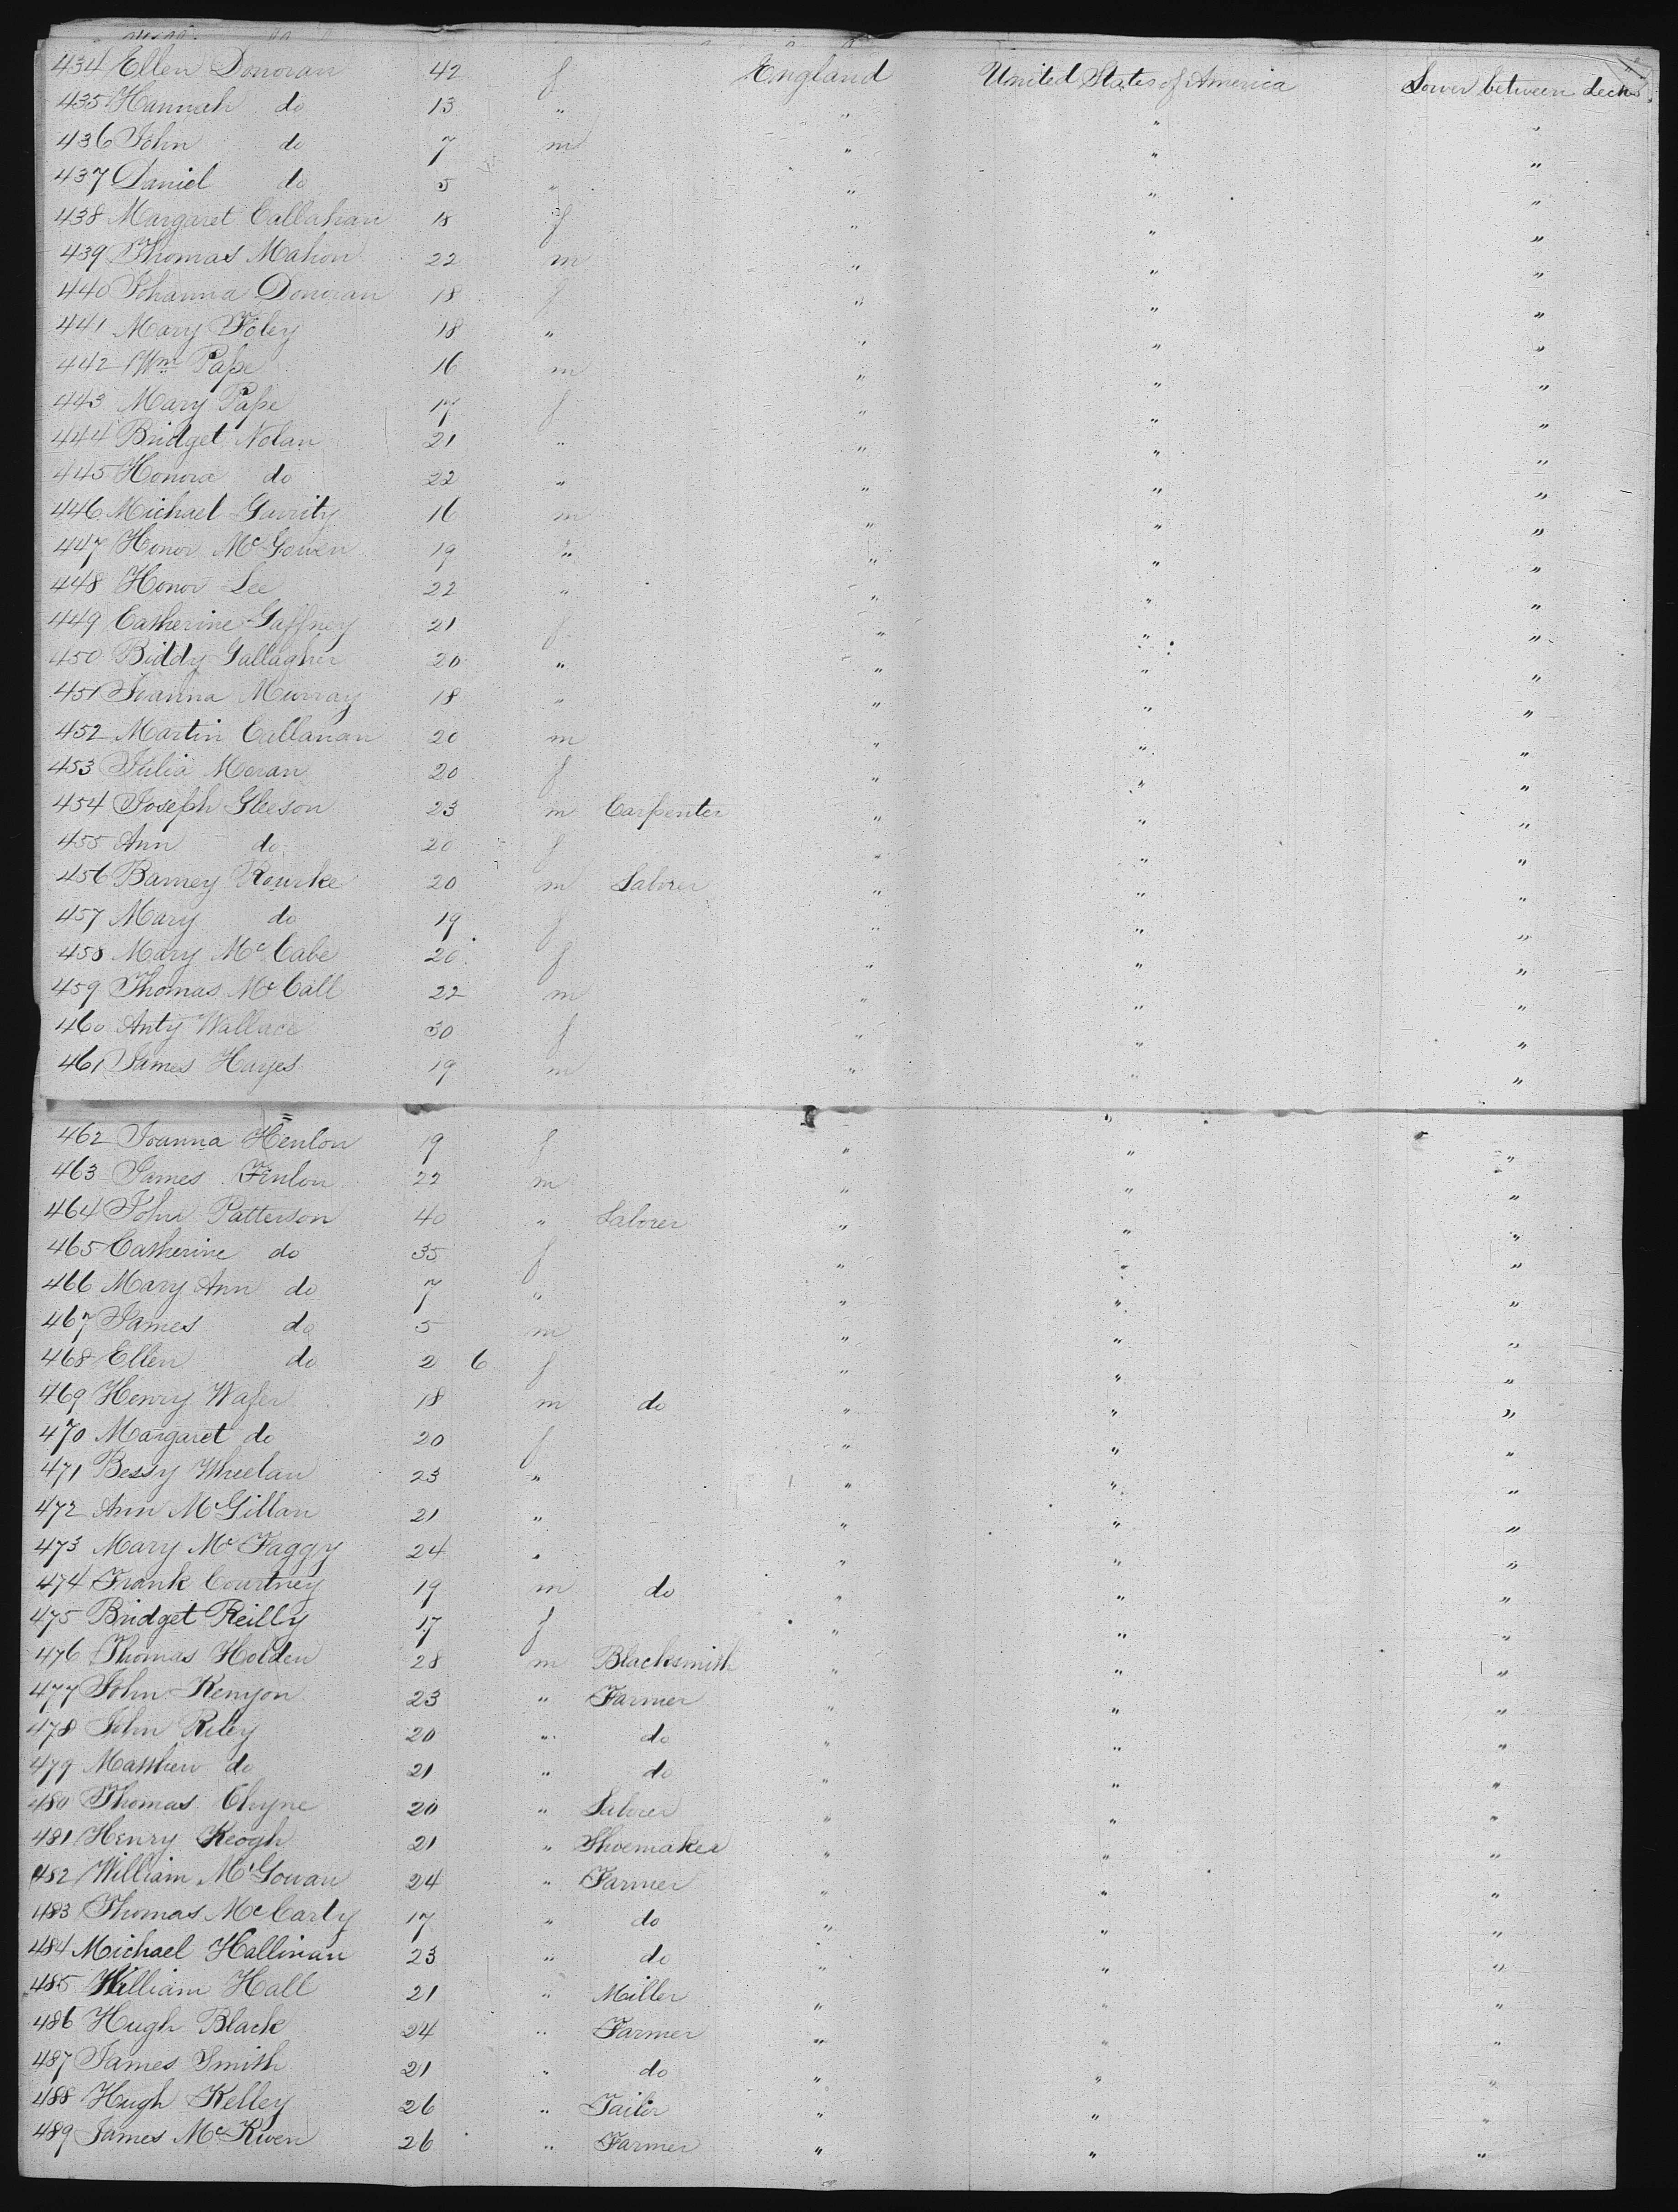 434 Ellen Donovan 42 f England United States of America Lower between decks
435 Hannah do 13 " " " "
436 John do 7 m " " "
437 Daniel do 5 " " " "
438 Margaret Callahan 18 f " " "
439 Thomas Mahon 22 m " " "
440 Johanna Donovan 18 f " " "
441 Mary Foley 18 " " " "
442 Wm Pape 16 m " " "
443 Mary Pape 17 f " " "
444 Bridget Nolan 21 " " " "
445 Honora do 22 " " " "
446 Michael Garrity 16 m " " "
447 Honor McGowen 19 " " " "
448 Honor Lee 22 " " " "
449 Catherine Gaffney 21 f " " "
450 Biddy Gallagher 20 " " " "
451 Joanna Murray 18 " " " "
452 Martin Callanan 20 m " " "
453 Julia Moran 20 f " " "
454 Joseph Gleeson 23 m Carpenter " " "
455 Ann do 20 f " " "
456 Barney Rourke 20 m Laborer " " "
457 Mary do 19 f " " "
458 Mary McCabe 20 f " " "
459 Thomas McCall 22 m " " "
460 Anty Wallace 30 f " " "
461 James Hayes 19 m " " "
462 Joanna Henlon 19 f " " "
463 James Finlon 22 m " " "
464 John Patterson 40 " Laborer " " "
465 Catherine do 35 f " " "
466 Mary Ann do 7 " " " "
467 James do 5 m " " "
468 Ellen do 2 6 f " " "
469 Henry Wafer 18 m do " " "
470 Margaret do 20 f " " "
471 Bessy Wheelan 23 " " " "
472 Ann McGillan 21 " " " "
473 Mary McFaggy 24 " " " "
474 Frank Courtney 19 m do " " "
475 Bridget Reilly 17 f " " "
476 Thomas Holden 28 m Blacksmith " " "
477 John Kenyon 23 " Farmer " " "
478 John Riley 20 " do " " "
479 Matthew do 21 " do " " "
480 Thomas Clyne 20 " Laborer " " "
481 Henry Keogh 21 " Shoemaker " " "
482 William McGowan 24 " Farmer " " "
483 Thomas McCarty 17 " do " " "
484 Michael Hallinan 23 " do " " "
485 William Hall 21 " Miller " " "
486 Hugh Black 24 " Farmer " " "
487 James Smith 21 " do " " "
488 Hugh Kelley 26 " Tailor " " "
489 James McKwen 26 " Farmer " " "